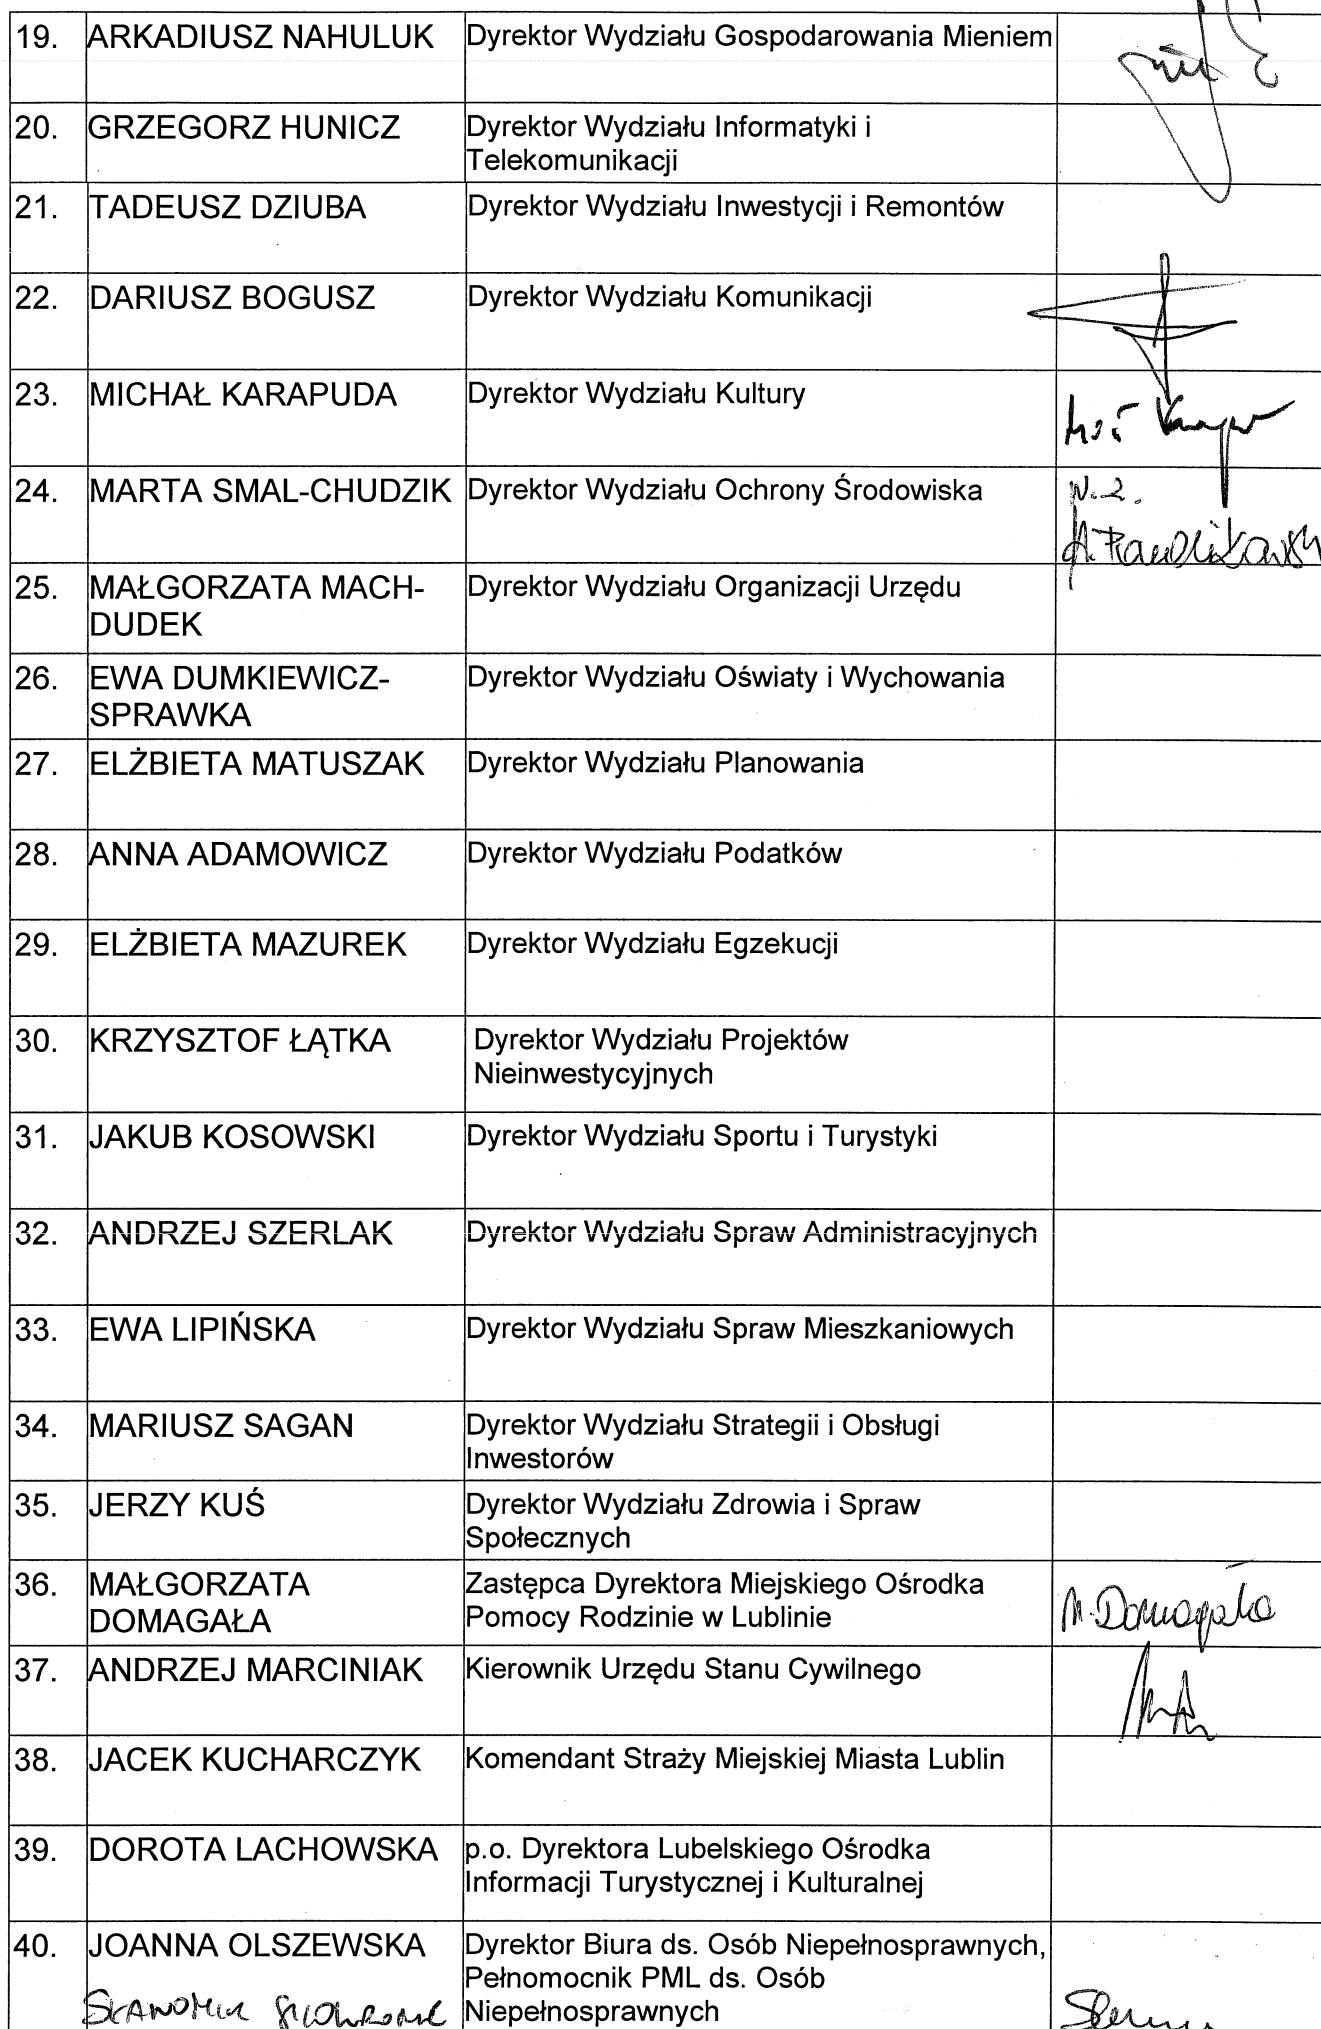 19. ARKADIUSZ NAHULUK Dyrektor Wydziału Gospodarowania Mieniem
20. GRZEGORZ HUNICZ Dyrektor Wydziału Informatyki i
Telekomunikacji
21. TADEUSZ DZIUBA Dyrektor Wydziału Inwestycji i Remontów
22. DARIUSZ BOGUSZ Dyrektor Wydziału Komunikacji
23. MICHAŁ KARAPUDA Dyrektor Wydziału Kultury
24. MARTA SMAL-CHUDZIK Dyrektor Wydziału Ochrony Środowiska
25. MAŁGORZATA MACH- Dyrektor Wydziału Organizacji Urzędu
DUDEK
26. EWA DUMKIEWICZ- Dyrektor Wydziału Oświaty i Wychowania
SPRAWKA
27. ELŻBIETA MATUSZAK Dyrektor Wydziału Planowania
28. ANNA ADAMOWICZ Dyrektor Wydziału Podatków
29. ELŻBIETA MAZUREK Dyrektor Wydziału Egzekucji
30. KRZYSZTOF ŁĄTKA Dyrektor Wydziału Projektów
Nieinwestycyjnych
31. JAKUB KOSOWSKI Dyrektor Wydziału Sportu i Turystyki
32. ANDRZEJ SZERLAK Dyrektor Wydziału Spraw Administracyjnych
33. EWA LIPIŃSKA Dyrektor Wydziału Spraw Mieszkaniowych
34. MARIUSZ SAGAN Dyrektor Wydziału Strategii i Obsługi
Inwestorów
35. JERZY KUŚ Dyrektor Wydziału Zdrowia i Spraw
Społecznych
36. MAŁGORZATA Zastępca Dyrektora Miejskiego Ośrodka
DOMAGAŁA Pomocy Rodzinie w Lublinie M. Domagała
37. ANDRZEJ MARCINIAK Kierownik Urzędu Stanu Cywilnego
38. JACEK KUCHARCZYK Komendant Straży Miejskiej Miasta Lublin
39. DOROTA LACHOWSKA p.o. Dyrektora Lubelskiego Ośrodka
Informacji Turystycznej i Kulturalnej
40. JOANNA OLSZEWSKA Dyrektor Biura ds. Osób Niepełnosprawnych,
Pełnomocnik PML ds. Osób
Niepełnosprawnych